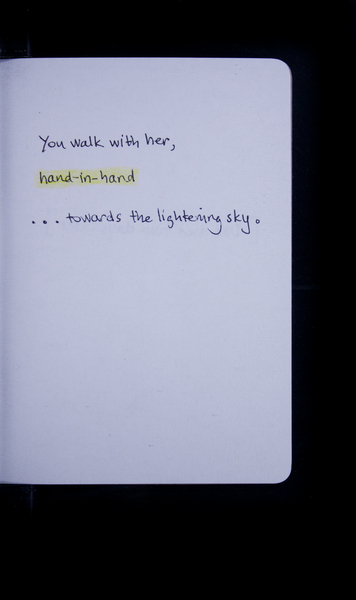 You walk with her,
hand-in-hand
... towards the lightening sky.